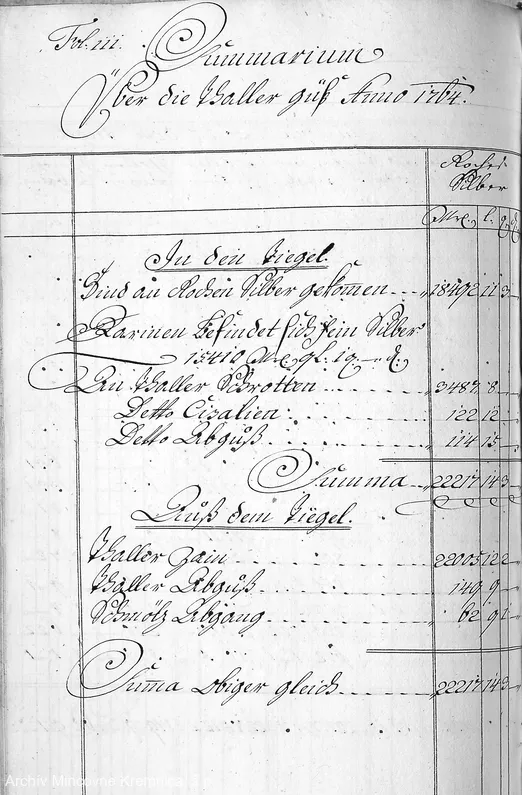 Fol. iii.
Summarium
Über die Thaller güß Anno 1764.
Roches
Silber
Mrc. l. q. d.
In den Tiegel.
Sind an Rochen Silber gekom̄en 18492 11 3
Darinen befindet sich fein Silber
15410 Mrc 9 l. 1 q. – d.
An Thaller Schrotten 3487 8
Detto Cisalien 122 12
Detto Abguß 114 15
Summa 22217 14 3
Auß dem Tiegel.
Thaller Zain 22005 12 2
Thaller Abguß 149 9
Schmölz Abgang 62 9 1
Sum̄a obiger gleich 22217 14 3
Archiv Mincovne Kremnica